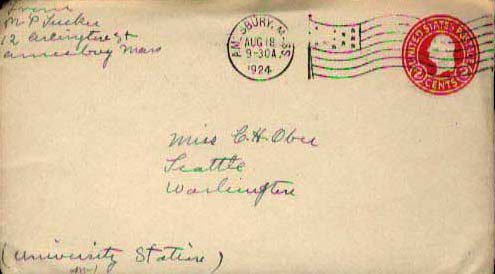 From
M P Tucker
12 Arlington St
Amesbury Mass
AMESBURY, MASS
AUG 18
9-30A
1924
UNITED STATES POSTAGE
2 CENTS 2
Miss C. H. Ober
Seattle
Washington
(University Station)